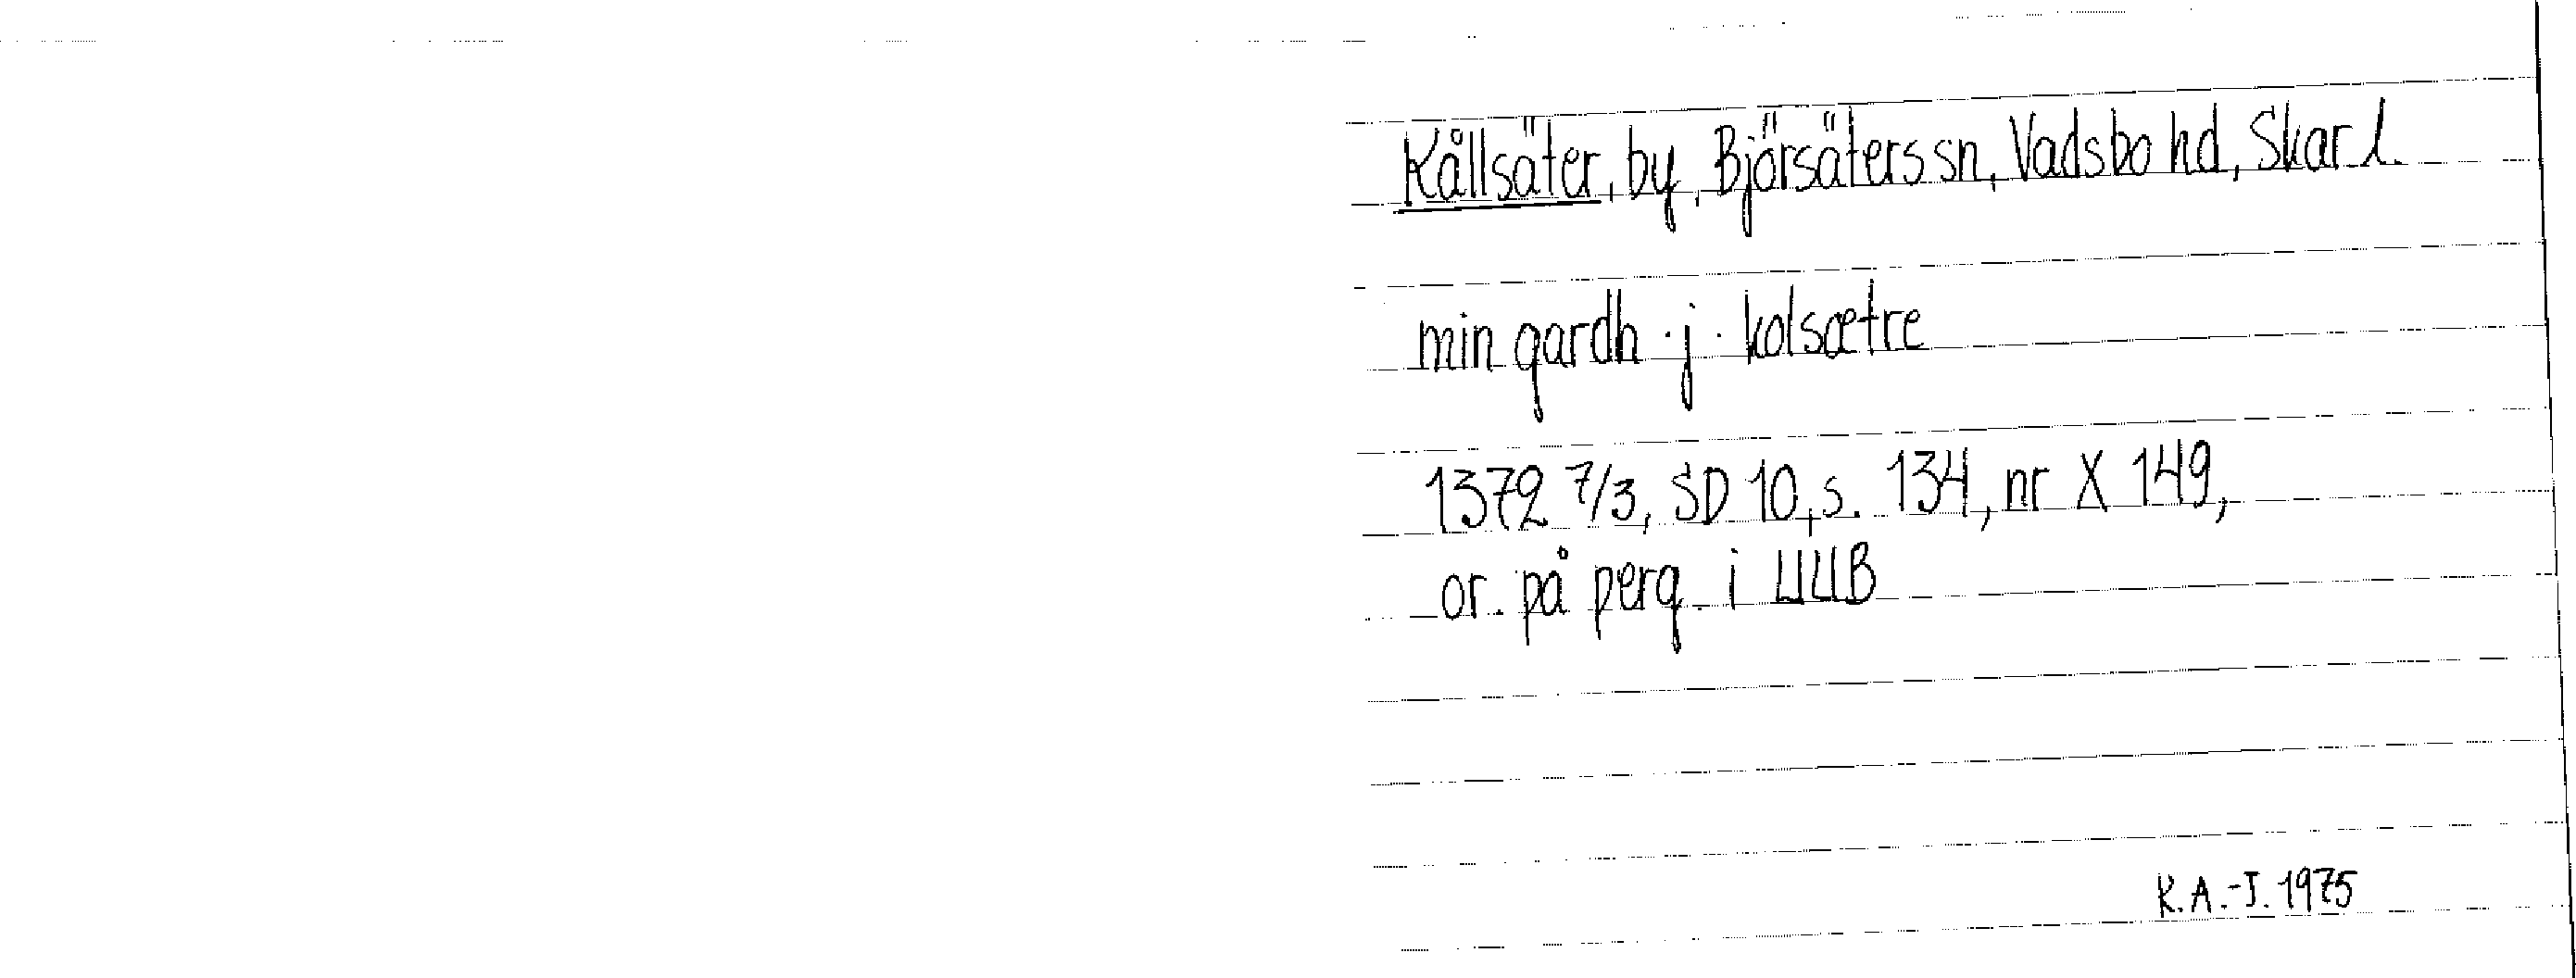 Kållsäter, by, Björsäters sn, Vadsbo hd, Skar l.
min gardh · j · kolsætre
1372 7/3, SD 10, s. 134, nr X 149,
or. på perg. i UUB
K.A.-J. 1975